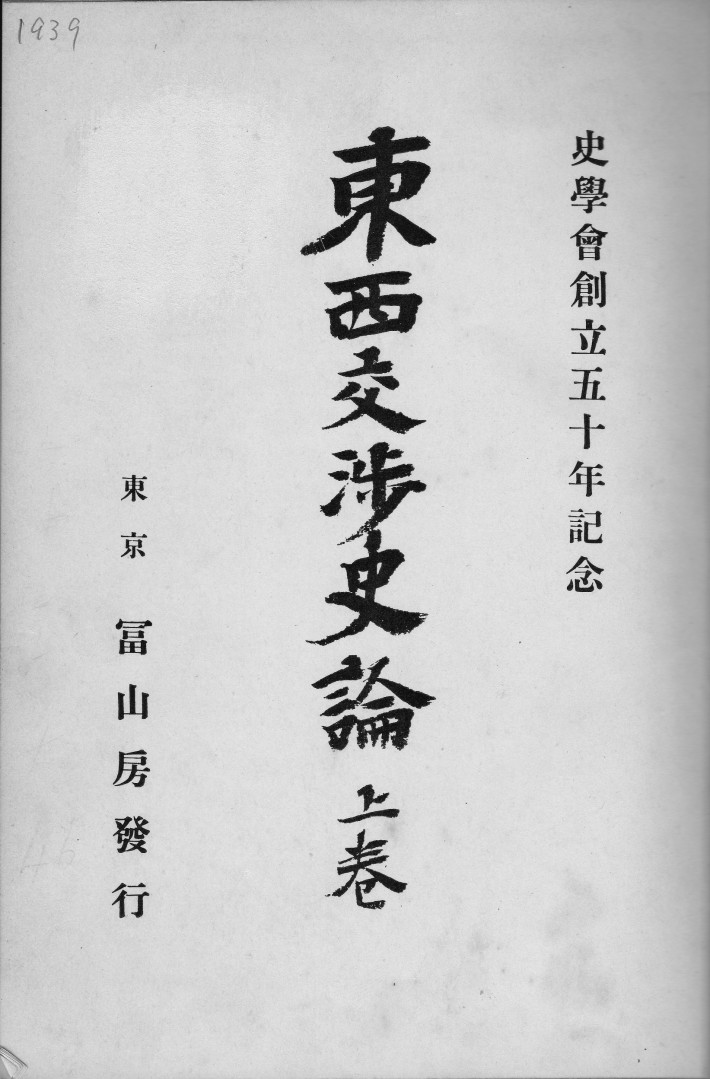 1939
史學會創立五十年記念
東西交渉史論 上卷
東京 冨山房發行